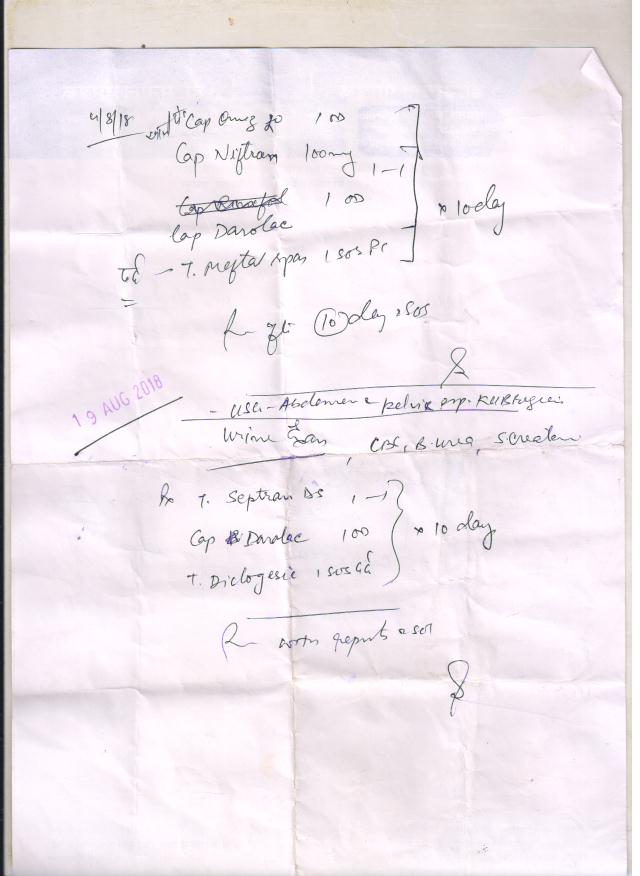 4/8/18 Cap Omez 20 1 OD
Cap Niftran 100mg 1-1
1 OD
Cap Darolac
x 10 day
दर्द - T. Meftal spas 1 SOS
R 10 day SOS
19 AUG 2018
- USG - Abdomen & pelvis esp. KUB region
Urine CBC, B. urea, S. Creatin
Rx T. Septran DS 1-1
Cap Darolac 1 OD x 10 day
T. Diclogesic 1 SOS दर्द
R with reports SOS